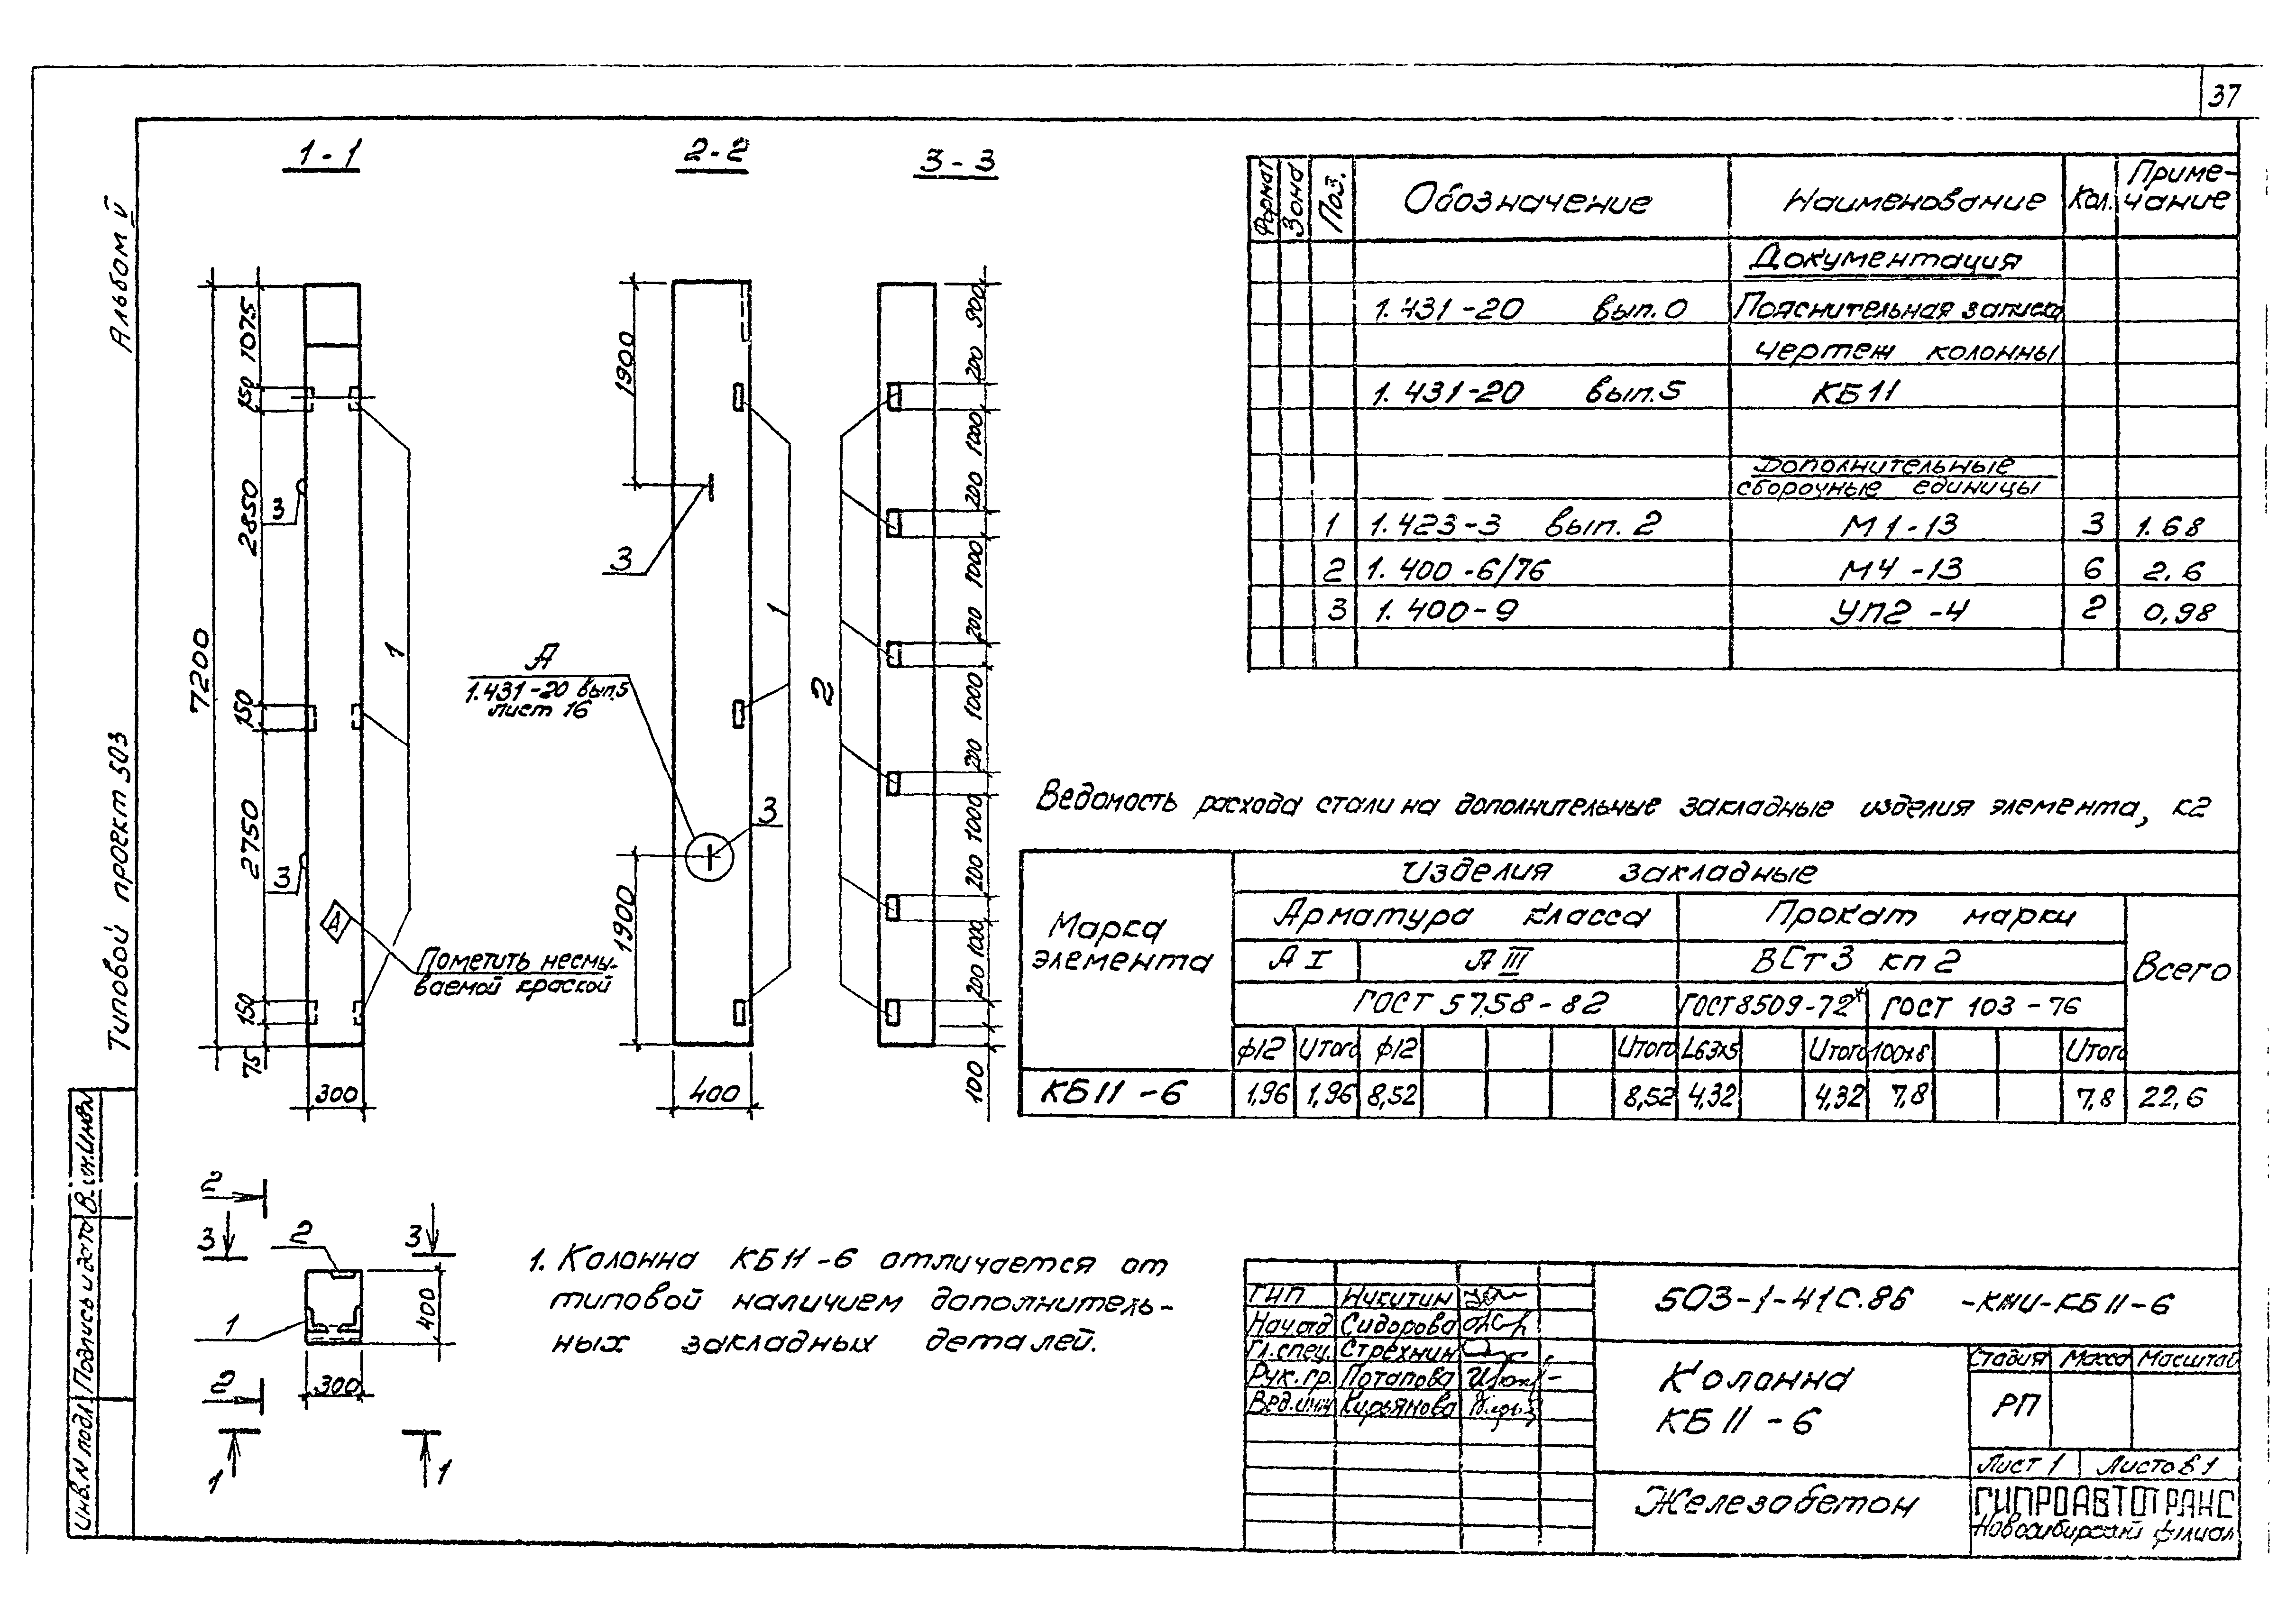 37
Альбом V
Типовой проект 503
1-1
2-2
3-3
7200
1075
150
2850
150
2750
150
75
3
3
1
А
Пометить несмы-
ваемой краской
300
1900
3
А
1.431-20 вып.5
лист 16
3
1900
1
400
2
900
200
1000
200
1000
200
1000
200
1000
200
1000
200
100
Формат
Зона
Поз.
Обозначение
Наименование
Кол.
Приме-
чание
Документация
1.431-20 вып.0 Пояснительная записка
Чертеж колонны
1.431-20 вып.5 КБ11
Дополнительные
сборочные единицы
1 1.423-3 вып.2 М1-13 3 1.68
2 1.400-6/76 М4-13 6 2.6
3 1.400-9 УП2-4 2 0,98
Ведомость расхода стали на дополнительные закладные изделия элемента, кг
Марка
элемента
Изделия закладные
Арматура класса
Прокат марки
А I
А III
ВСт3 кп2
Всего
ГОСТ 5758-82
ГОСТ 8509-72*
ГОСТ 103-76
ф12 Итого ф12 Итого L63х5 Итого 100х8 Итого
КБ11-6 1,96 1,96 8,52 8,52 4,32 4,32 7,8 7,8 22,6
2
3
2
3
1
400
300
2
1
1
1. Колонна КБ11-6 отличается от
типовой наличием дополнитель-
ных закладных деталей.
ГИП Никитин
Нач.отд Сидорова
Гл.спец. Стрехнин
Рук.гр. Потапова
Вед.инж Кирьянова
503-1-41С.86 -КЖИ-КБ11-6
Колонна
КБ11-6
Стадия Масса Масштаб
РП
Лист 1 Листов 1
Железобетон
ГИПРОАВТОТРАНС
Новосибирский филиал
Инв.N подл.
Подпись и дата